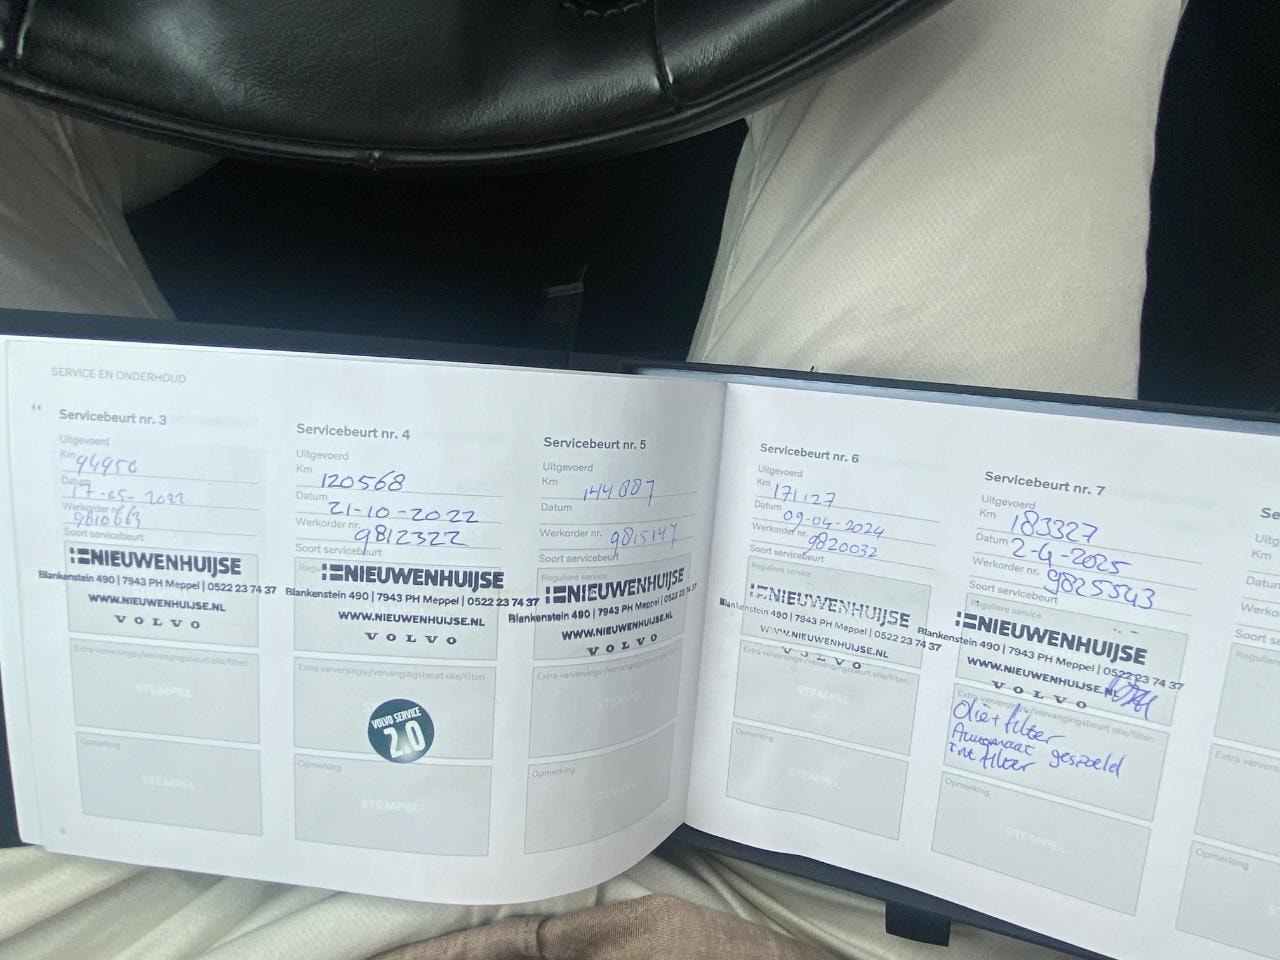 SERVICE EN ONDERHOUD
Servicebeurt nr. 3
Uitgevoerd
Km 94950
Datum 17-05-2022
Werkorder nr.
9810663
Soort servicebeurt
NIEUWENHUIJSE
Blankenstein 490 | 7943 PH Meppel | 0522 23 74 37
WWW.NIEUWENHUIJSE.NL
VOLVO
Extra verversings-/vervangingsbeurt olie/filter:
STEMPEL
Opmerking
STEMPEL
8
Servicebeurt nr. 4
Uitgevoerd
Km 120568
Datum 21-10-2022
Werkorder nr. 9812322
Soort servicebeurt
NIEUWENHUIJSE
Blankenstein 490 | 7943 PH Meppel | 0522 23 74 37
WWW.NIEUWENHUIJSE.NL
VOLVO
Extra verversings-/vervangingsbeurt olie/filter:
VOLVO SERVICE
2.0
Opmerking
STEMPEL
Servicebeurt nr. 5
Uitgevoerd
Km 144807
Datum
Werkorder nr. 9815147
Soort servicebeurt
Reguliere service
NIEUWENHUIJSE
Blankenstein 490 | 7943 PH Meppel | 0522 23 74 37
WWW.NIEUWENHUIJSE.NL
VOLVO
Extra verversings-/vervangingsbeurt olie/filter:
STEMPEL
Opmerking
STEMPEL
Servicebeurt nr. 6
Uitgevoerd
Km 171127
Datum 09-04-2024
Werkorder nr. 9820032
Soort servicebeurt
Reguliere service
NIEUWENHUIJSE
Blankenstein 490 | 7943 PH Meppel | 0522 23 74 37
WWW.NIEUWENHUIJSE.NL
VOLVO
Extra verversings-/vervangingsbeurt olie/filter:
STEMPEL
Opmerking
STEMPEL
Servicebeurt nr. 7
Uitgevoerd
Km 183327
Datum 2-4-2025
Werkorder nr. 9825543
Soort servicebeurt
Reguliere service
NIEUWENHUIJSE
Blankenstein 490 | 7943 PH Meppel | 0522 23 74 37
WWW.NIEUWENHUIJSE.NL
VOLVO
Extra verversings-/vervangingsbeurt olie/filter:
Olie + filter
Automaat gespoeld
Int filter
Opmerking
STEMPEL
Se
Uitg
Km
Datum
Werko
Soort s
Regulier
Extra ververs
Opmerking